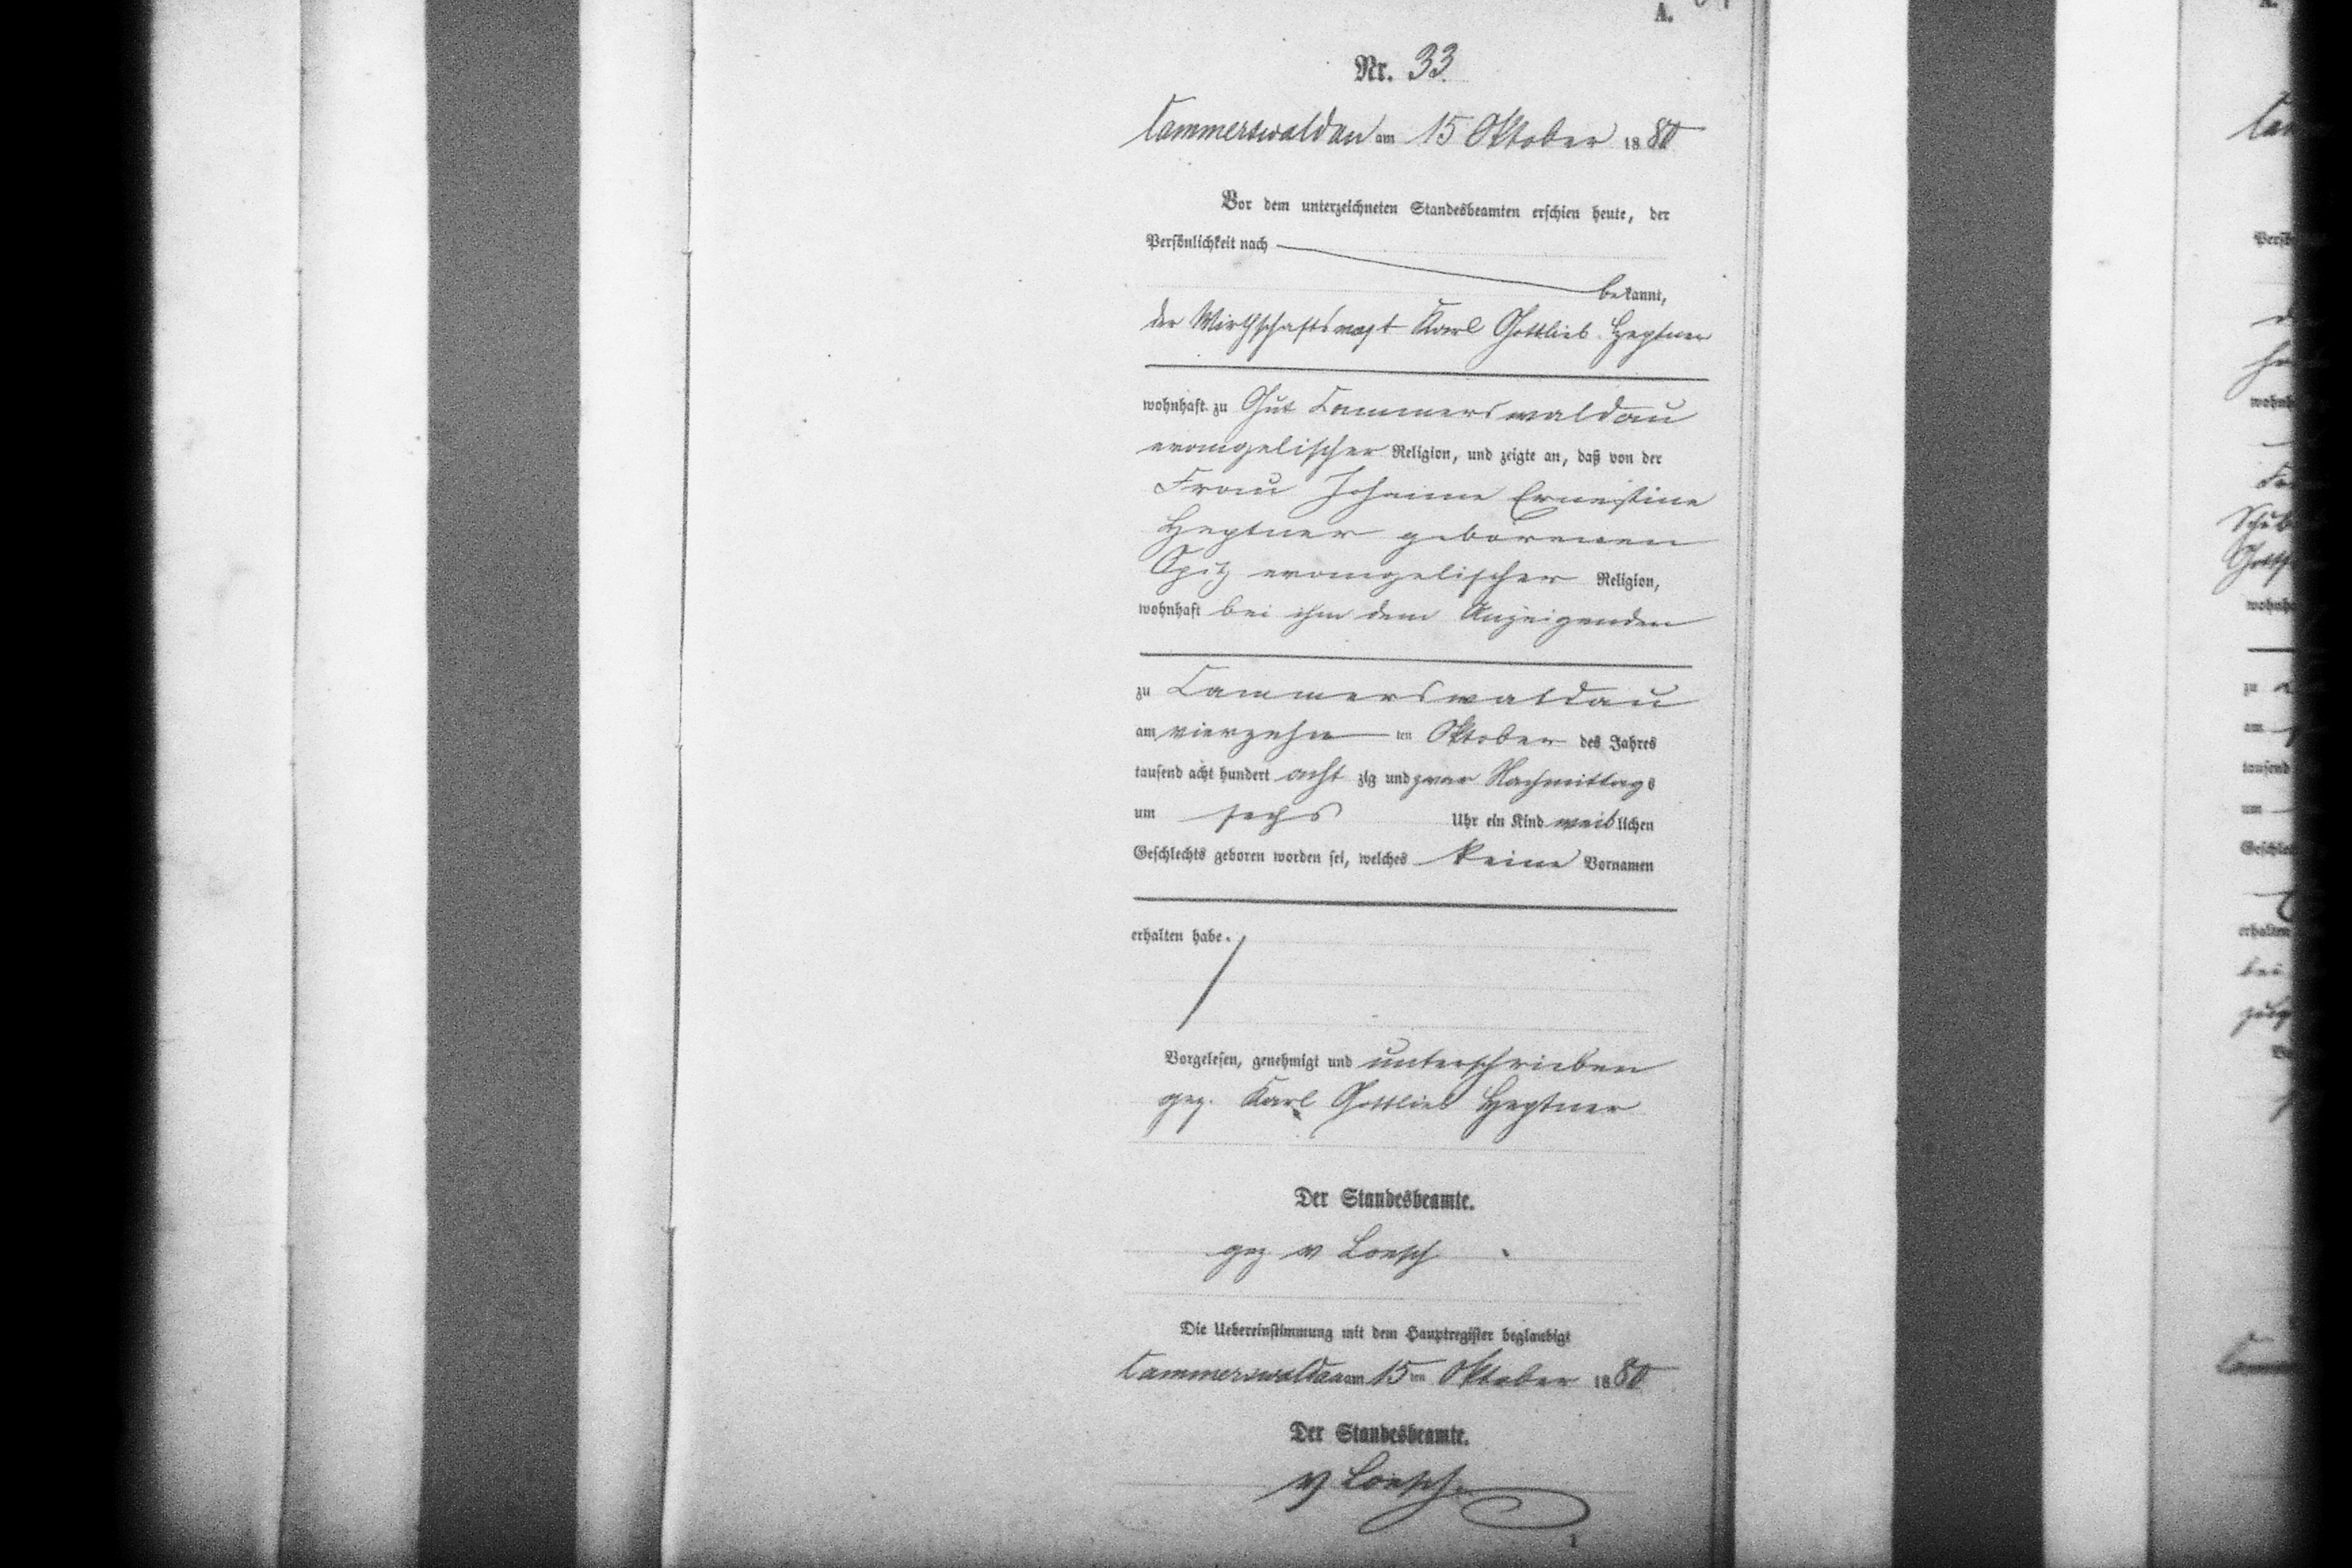 A.
Nr. 33.
Cammerswaldau am 15 Oktober 1880
Vor dem unterzeichneten Standesbeamten erschien heute, der
Persönlichkeit nach
bekannt,
der Wirthschaftsvogt Karl Gottlieb Heptner
wohnhaft zu Gut Cammerswaldau
evangelischer Religion, und zeigte an, daß von der
Frau Johanne Ernestine
Heptner geborenen
Opitz evangelischer Religion,
wohnhaft bei ihm dem Anzeigenden
zu Cammerswaldau
am vierzehn ten Oktober des Jahres
tausend acht hundert acht zig und zwar Nachmittags
um sechs Uhr ein Kind weiblichen
Geschlechts geboren worden sei, welches keine Vornamen
erhalten habe.
Vorgelesen, genehmigt und unterschrieben
gez. Karl Gottlieb Heptner
Der Standesbeamte.
gez v Loesch
Die Uebereinstimmung mit dem Hauptregister beglaubigt
Cammerswaldau am 15 ten Oktober 1880
Der Standesbeamte.
v Loesch.
1